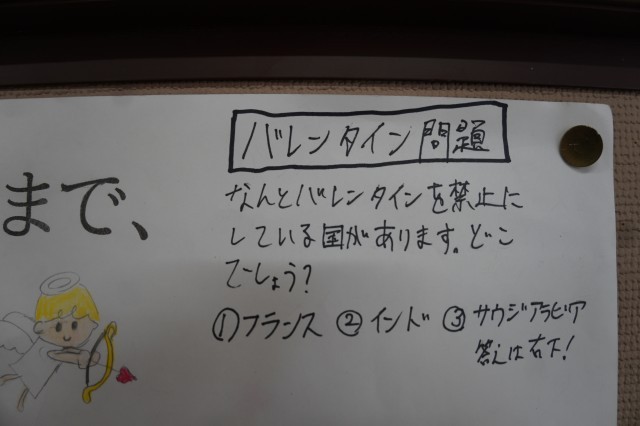 バレンタイン問題
まで、
なんとバレンタインを禁止に
している国があります。どこ
でしょう?
①フランス ②インド ③サウジアラビア
答えは右下!